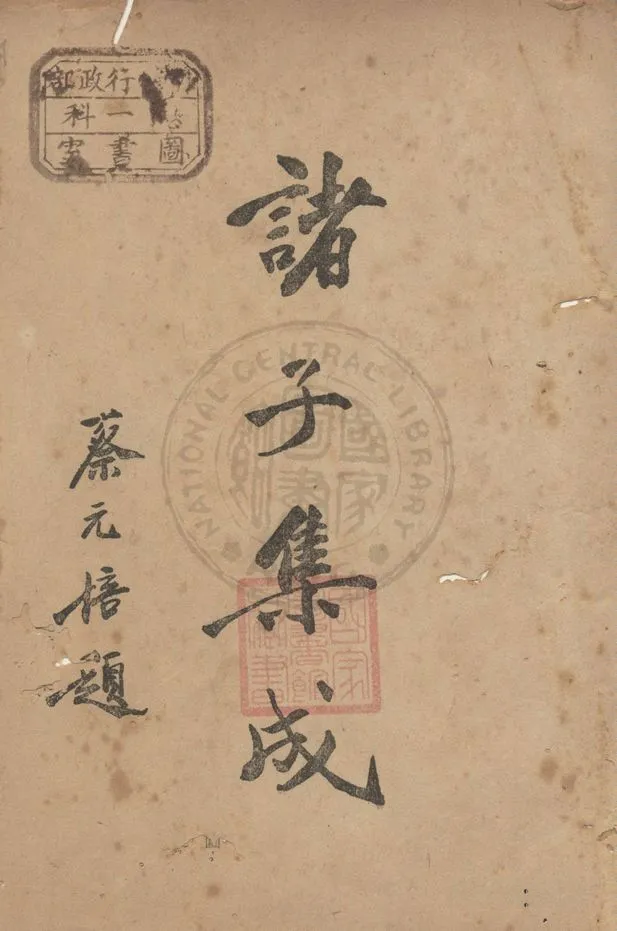 行政部
一科
圖書室
諸子集成
蔡元培題
NATIONAL CENTRAL LIBRARY
國家
圖書